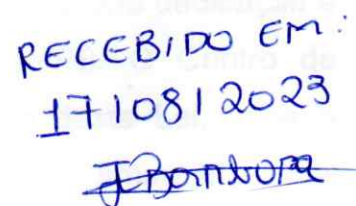 RECEBIDO EM:
17/08/2023